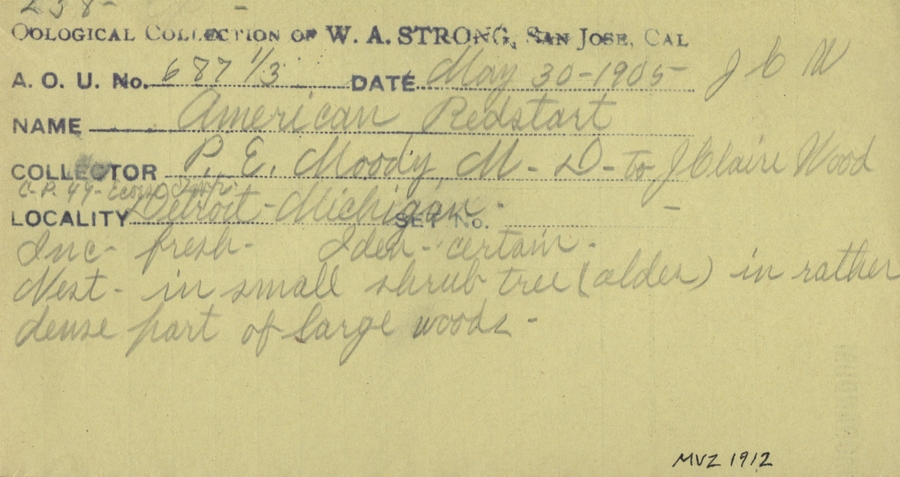 238-
OOLOGICAL COLLECTION OF W. A. STRONG, SAN JOSE, CAL
A. O. U. No. 687 1/3 DATE May 30-1905- J C W
NAME American Redstart
COLLECTOR P. E. Moody, M-D- to J Claire Wood
C.P. 49-Ecorse
LOCALITY Detroit-Michigan- SET No. -
Inc- fresh- Iden- certain-
Nest- in small shrub tree (alder) in rather
dense part of large woods-
MVZ 1912